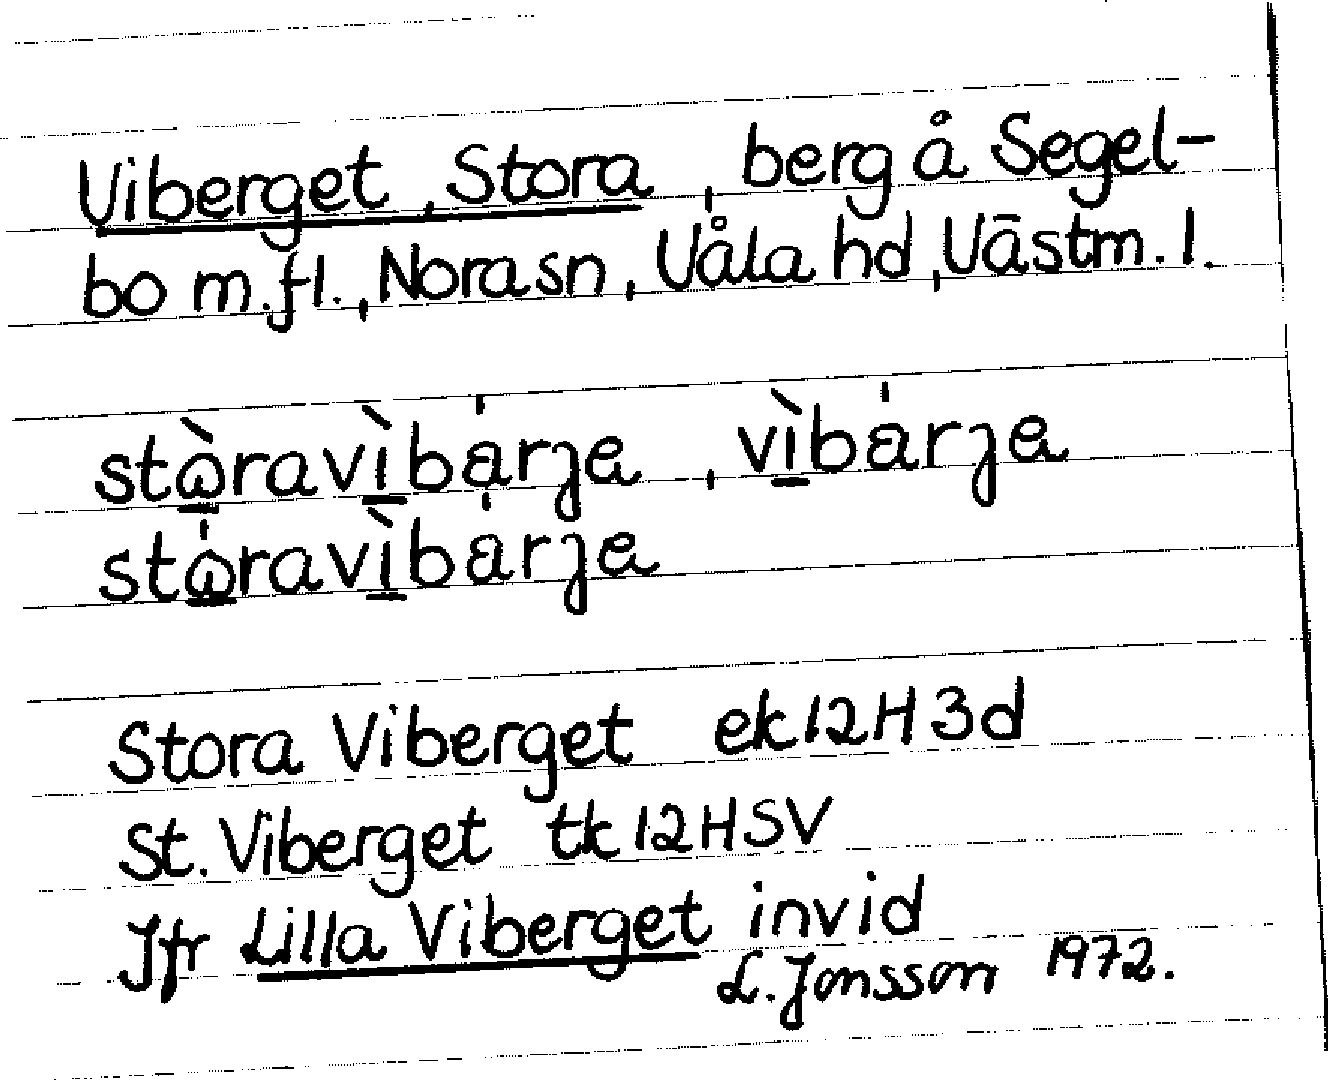 Viberget, Stora, berg å Segel-
bo m.fl., Nora sn, Våla hd, Västm. l.
stὼravìbárȷa, vìbárȷa
stώravìbárȷa
Stora Viberget ek 12H 3d
St. Viberget tk 12HSV
Jfr Lilla Viberget invid
L. Jonsson 1972.